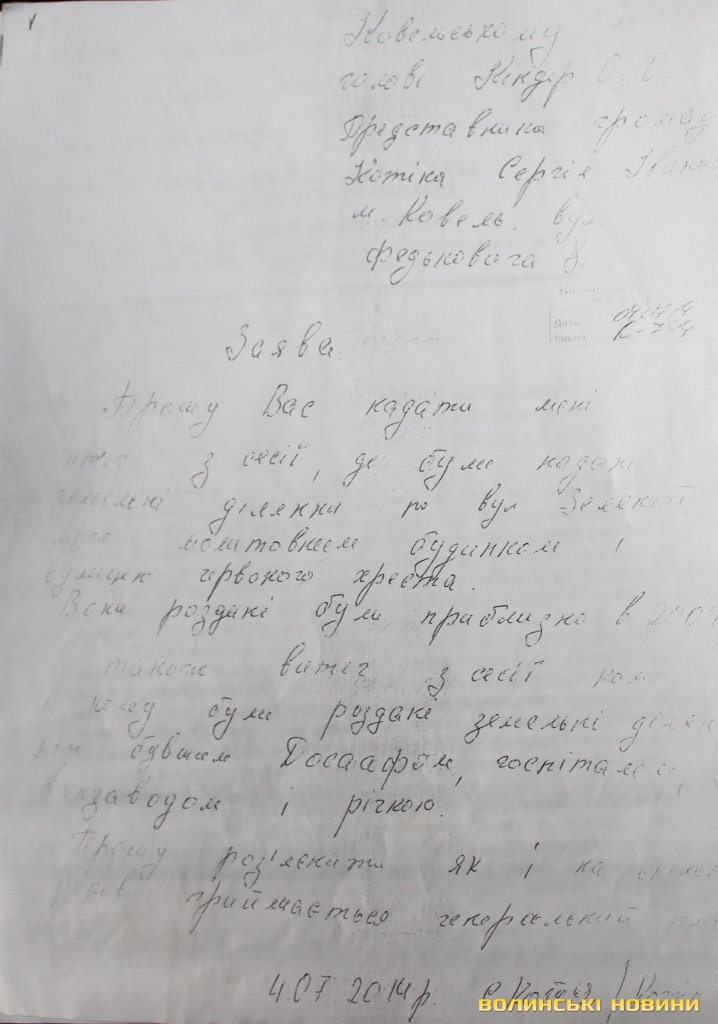 Ковельському
голові Кіндер О. О.
Представника громад
Котіка Сергія Івано
м. Ковель. вул.
Федьковича 8.
Дата 04 07 14
К-744
Заява.
Прошу Вас надати мені
витяг з сесії, де були надані
земельні ділянки по вул Зеленій
між молитовнем будинком і
вулицею червоного хреста.
Вони роздані були приблизно в 2009
А також витяг з сесії кому
були роздані земельні ділян
між бувшем Досаафом, госпіталем,
заводом і річкою.
Прошу роз'яснити як і на скільки
років приймається генеральний пла
4.07 2014р.
ВОЛИНСЬКІ НОВИНИ